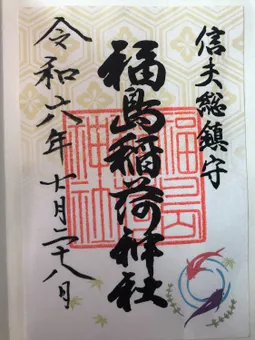 信夫総鎮守
福島稲荷神社
令和六年 十月二十八日